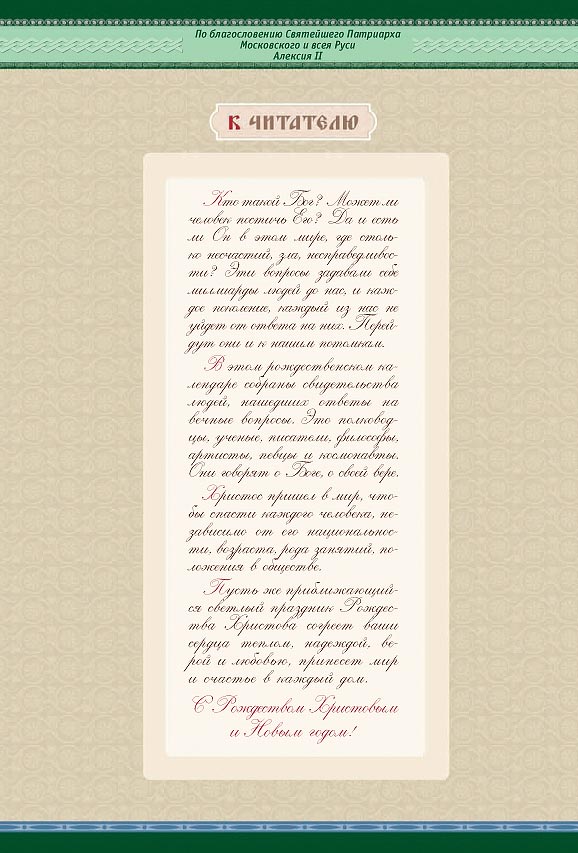 По благословению Святейшего Патриарха
Московского и всея Руси
Алексия II
К ЧИТАТЕЛЮ
Кто такой Бог? Может ли
человек постичь Его? Да и есть
ли Он в этом мире, где столь-
ко несчастий, зла, несправедливос-
ти? Эти вопросы задавали себе
миллиарды людей до нас, и каж-
дое поколение, каждый из нас не
уйдет от ответа на них. Перей-
дут они и к нашим потомкам.
В этом рождественском ка-
лендаре собраны свидетельства
людей, нашедших ответы на
вечные вопросы. Это полковод-
цы, ученые, писатели, философы,
артисты, певцы и космонавты.
Они говорят о Боге, о своей вере.
Христос пришел в мир, что-
бы спасти каждого человека, не-
зависимо от его национальнос-
ти, возраста, рода занятий, по-
ложения в обществе.
Пусть же приближающий-
ся светлый праздник Рождес-
тва Христова согреет ваши
сердца теплом, надеждой, ве-
рой и любовью, принесет мир
и счастье в каждый дом.
С Рождеством Христовым
и Новым годом!